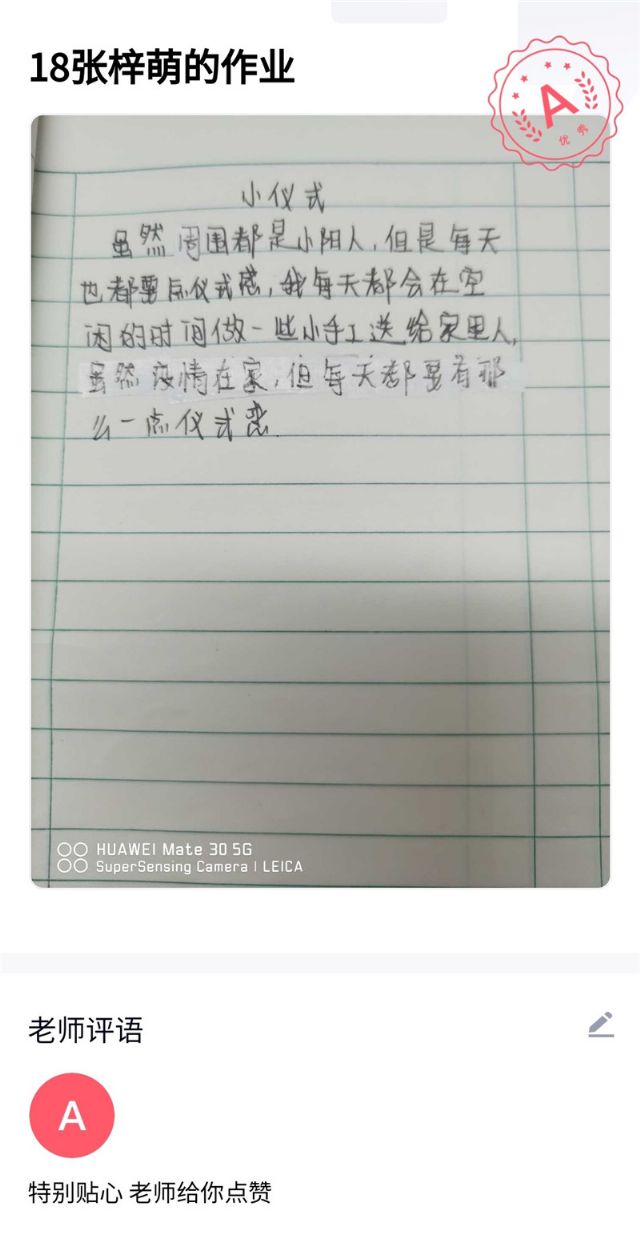 18张梓萌的作业
A
优秀
小仪式
虽然周围都是小阳人,但是每天
也都要点仪式感,我每天都会在空
闲的时间做一些小手工送给家里人,
虽然疫情在家,但每天都要有那
么一点仪式恋.
HUAWEI Mate 30 5G
SuperSensing Camera | LEICA
老师评语
A
特别贴心 老师给你点赞